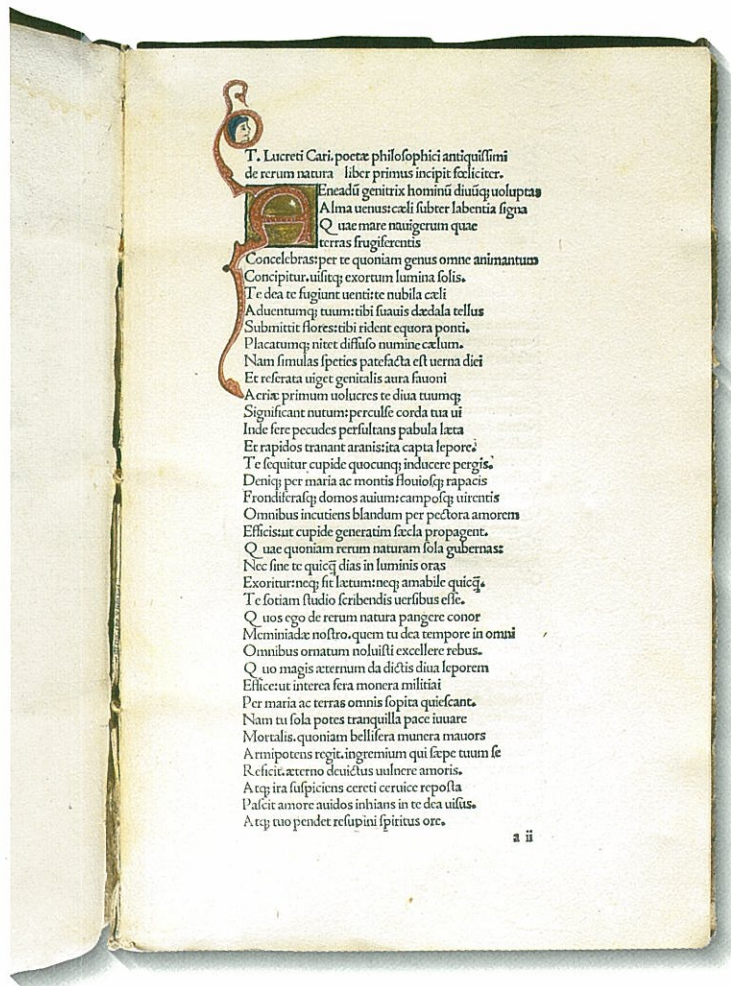 T. Lucreti Cari. poetæ philoſophici antiquiſſimi
de rerum natura liber primus incipit fœliciter.
AEneadũ genitrix hominũ diuũq; uoluptas
Alma uenus: cæli ſubter labentia ſigna
Q uae mare nauigerum quae
terras frugiferentis
Concelebras: per te quoniam genus omne animantum
Concipitur. uiſitq; exortum lumina ſolis.
Te dea te fugiunt uenti: te nubila cæli
Aduentumq; tuum: tibi ſuauis dædala tellus
Submittit flores: tibi rident equora ponti.
Placatumq; nitet diffuſo numine cælum.
Nam ſimulas ſpeties patefacta eſt uerna diei
Et reſerata uiget genitalis aura fauoni
Aeriæ primum uolucres te diua tuumq;
Significant nutum: perculſe corda tua ui
Inde fere pecudes perſultans pabula læta
Et rapidos tranant aranis: ita capta lepore.
Te ſequitur cupide quocunq; inducere pergis.
Deniq; per maria ac montis flouioſq; rapacis
Frondiferaſq; domos auium: campoſq; uirentis
Omnibus incutiens blandum per pectora amorem
Efficis: ut cupide generatim ſæcla propagent.
Q uae quoniam rerum naturam ſola gubernas:
Nec ſine te quicq̃ dias in luminis oras
Exoritur: neq; fit lætum: neq; amabile quicq̃.
Te ſotiam ſtudio ſcribendis uerſibus eſſe.
Q uos ego de rerum natura pangere conor
Meminiadæ noſtro. quem tu dea tempore in omni
Omnibus ornatum noluiſti excellere rebus.
Q uo magis æternum da dictis diua leporem
Effice: ut interea fera monera militiai
Per maria ac terras omnis ſopita quieſcant.
Nam tu ſola potes tranquilla pace iuuare
Mortalis. quoniam bellifera munera mauors
Armipotens regit. ingremium qui ſæpe tuum ſe
Reficit. æterno deuictus uulnere amoris.
Atq; ira ſuſpiciens cereti ceruice repoſta
Paſcit amore auidos inhians in te dea uiſus.
Atq; tuo pendet reſupini ſpiritus ore.
a ii